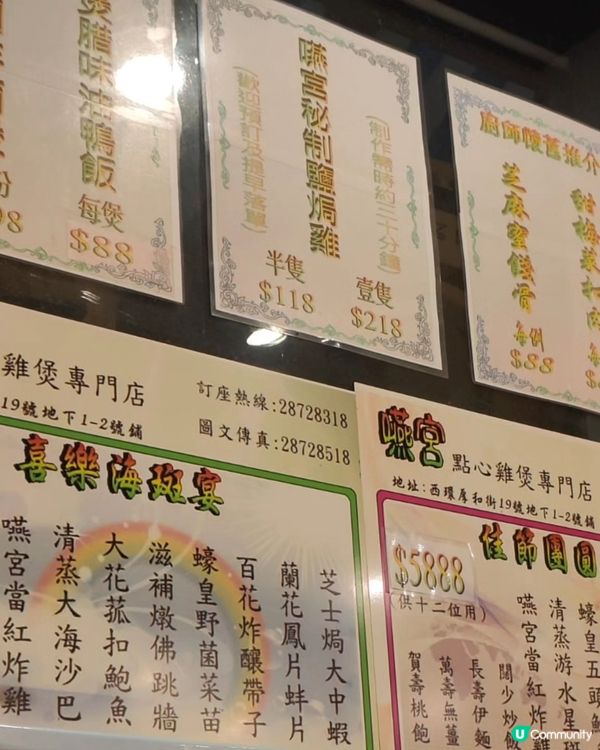 煲腊味油鴨飯
每煲
$88
98
嚥宮秘制鹽焗雞
(制作需時約二十分鐘)
(歡迎預訂及提早落單)
半隻
$118
壹隻
$218
廚師懷舊推介
芝麻蜜餞骨
每例
$88
梅菜扣肉
雞煲專門店
19號地下1-2號鋪
訂座熱線:28728318
圖文傳真:28728518
喜樂海斑宴
芝士焗大中蝦
蘭花鳳片蚌片
百花炸釀帶子
蠔皇野菌菜苗
滋補燉佛跳牆
大花菰扣鮑魚
清蒸大海沙巴
嚥宮當紅炸雞
嚥宮
點心雞煲專門店
地址:西環厚和街19號地下1-2號鋪
佳節團圓
$5888
(供十二位用)
蠔皇五頭鮑
清蒸游水星斑
嚥宮當紅炸
闔少炒飯
長壽伊麵
萬壽無薑
賀壽桃飽
U Community